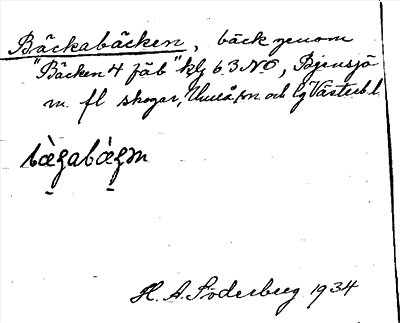 Bäckabäcken, bäck genom
"Bäcken 4 fäb" klg 6.3 NO, Bjensjö
m. fl skogar, Umeå sn. och lg Västerb l.
H. A. Söderberg 1934